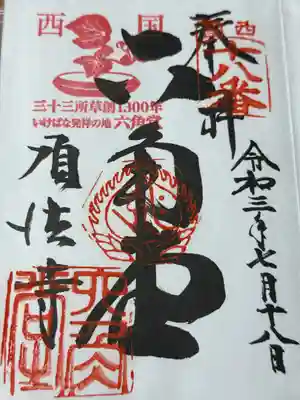 奉拝
西国
十八番
令和三年七月十八日
六角堂
西国
三十三所草創1300年
いけばな発祥の地 六角堂
頂法寺